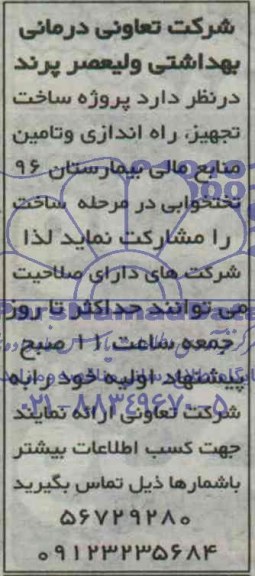 شرکت تعاونی درمانی
بهداشتی ولیعصر پرند
درنظر دارد پروژه ساخت
تجهیز، راه اندازی وتامین
منابع مالی بیمارستان ۹۶
تختخوابی در مرحله ساخت
را مشارکت نماید لذا
شرکت های دارای صلاحیت
می توانند حداکثر تا روز
جمعه ساعت ۱۱ صبح
پیشنهاد اولیه خود را به
شرکت تعاونی ارائه نمایند
۰۲۱-۸۸۳۴۹۶۷۰-۵
جهت کسب اطلاعات بیشتر
باشمارها ذیل تماس بگیرید
۵۶۷۲۹۲۸۰
۰۹۱۲۳۲۳۵۶۸۴